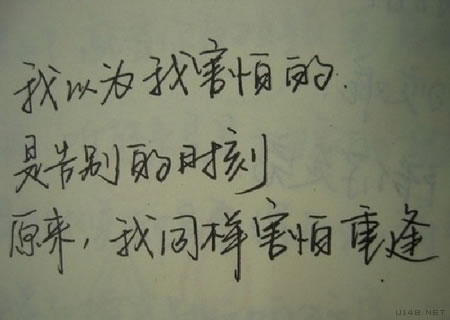 我以为我害怕的.
是告别的时刻
原来,我同样害怕重逢
U148.NET